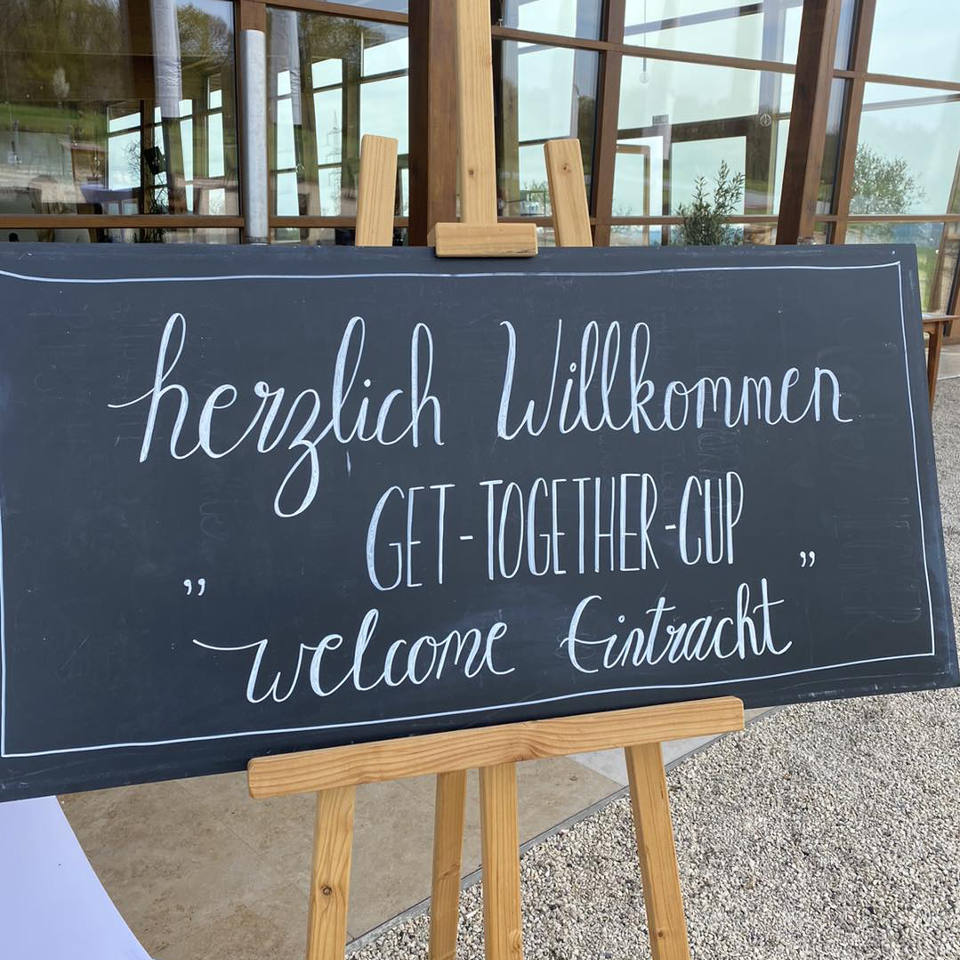 herzlich Willkommen
GET-TOGETHER-CUP
” ”
welcome Eintracht